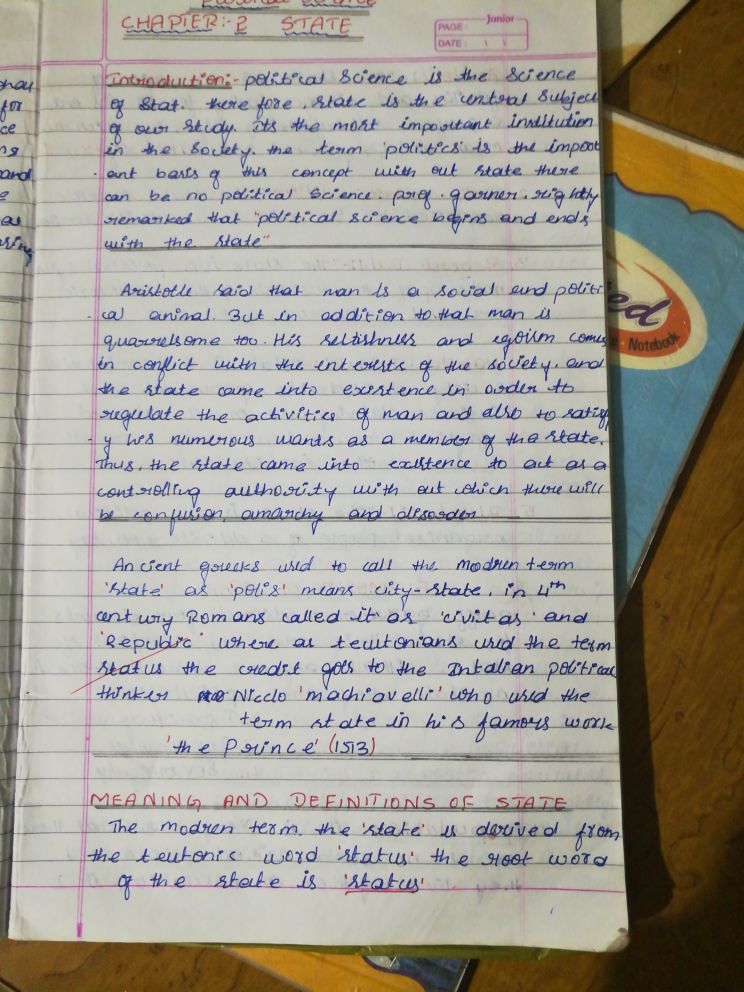 political science
CHAPTER:- 2 STATE
Junior
PAGE:
DATE:
Introduction:- political science is the science
of stat. there fore. state is the central subject
of our study. its the most important institution
in the society. the term 'politics' is the impoot
ant basis of this concept with out state there
can be no political science. prof. garner. rightly
remarked that "political science begins and ends
with the state"
Aristotle said that man is a social and politi
cal animal. But in addition to that man is
quarrelsome too. His selfishness and egoism comes
in conflict with the enterests of the society. and
the state came into existence in order to
regulate the activities of man and also to satisf
y his numerous wants as a member of the state.
Thus, the state came into existence to act as a
controlling authority with out which there will
be confusion, amarchy and disorder
Ancient greeks used to call the modren term
'state' as 'polis' means city-state. in 4th
century Romans called it as 'civitas' and
'Republic' where as teutonians used the term
status the credit goes to the Intalian political
thinker Nicclo 'machiavelli' who used the
term state in his famous work
'the Prince' (1513)
MEANING AND DEFINITIONS OF STATE
The modren term. the 'state' is derived from
the teutonic word 'status' the root word
of the state is 'status'
for
ce
and
ed
Notebook